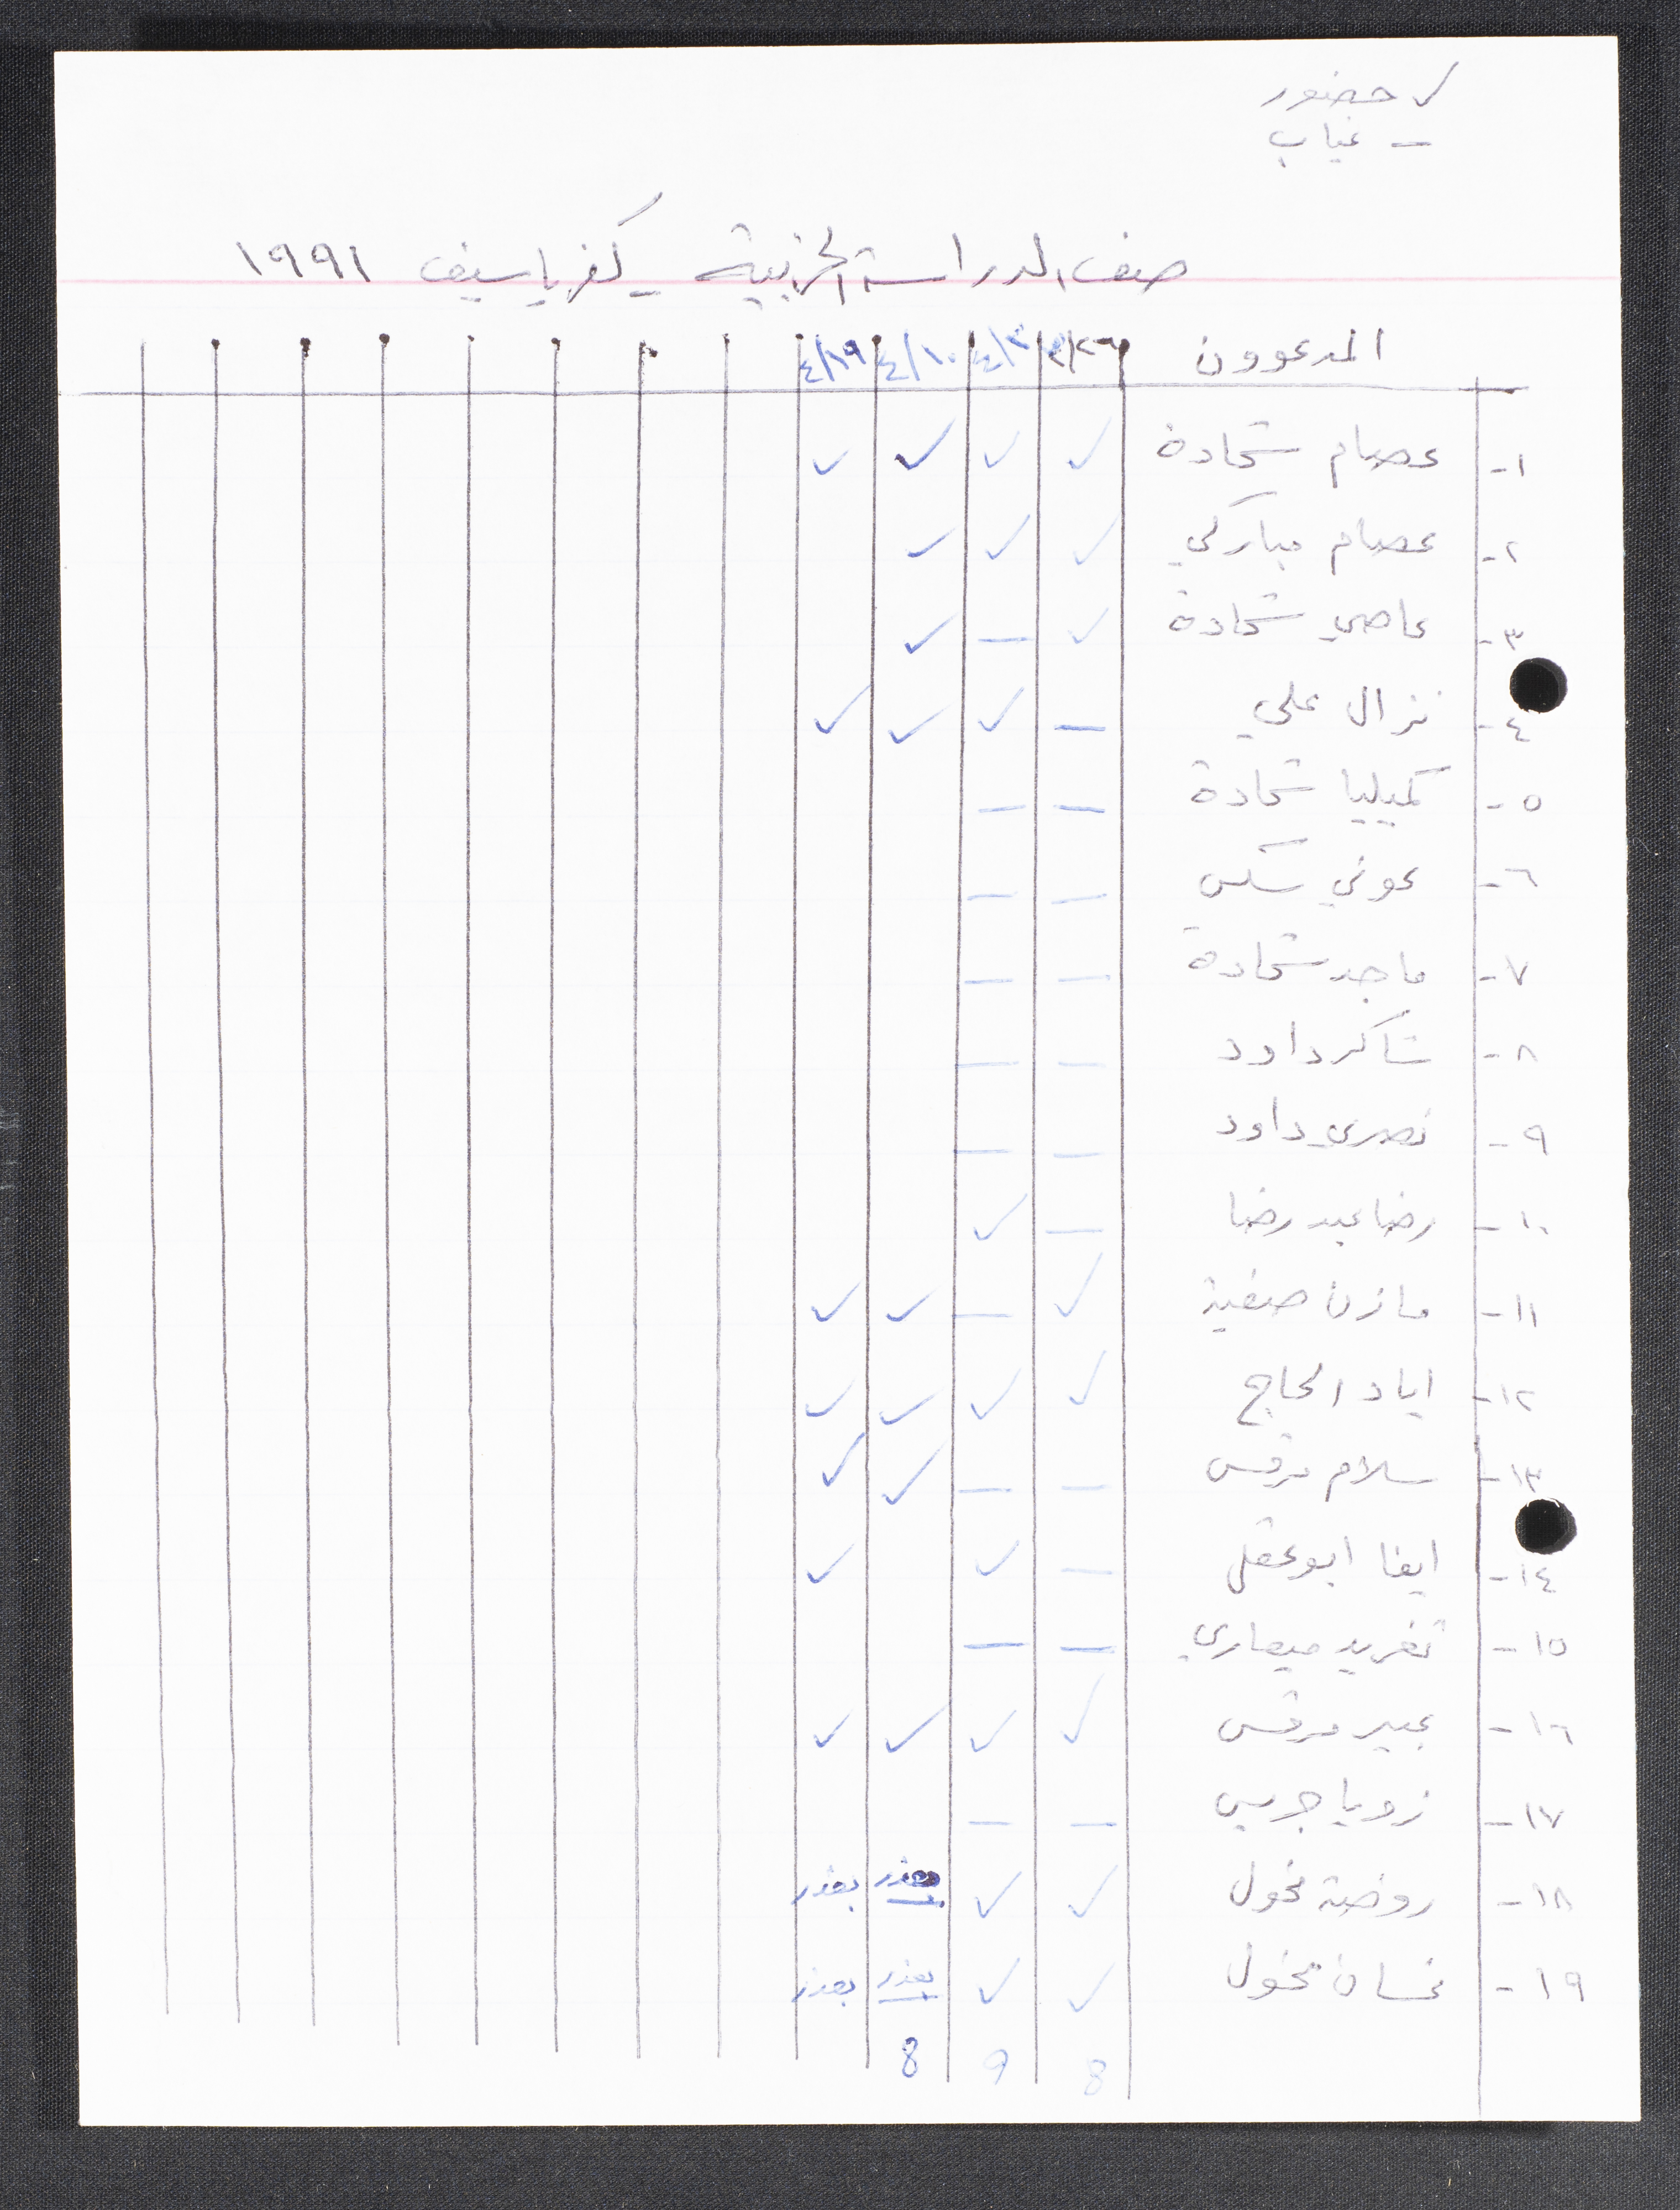 ✓ حضور
- غياب
صف الدراسة الحزبية - كفرياسيف ١٩٩١
المدعوون ٣/٢٦ ٤/٣ ٤/١٠ ٤/١٩
١- عصام شحادة ✓ ✓ ✓ ✓
٢- عصام مباركي ✓ ✓ ✓
٣- عاصي شحادة ✓ — ✓
٤- نزال علي — ✓ ✓ ✓
٥- كميليا شحادة — —
٦- عوني سكس — —
٧- ماجد شحادة — —
٨- شاكر داود — —
٩- نصري داود — —
١٠- رضا عبد رضا — ✓
١١- مازن صفية ✓ — ✓ ✓
١٢- اياد الحاج ✓ ✓ ✓ ✓
١٣- سلام مرقس — — ✓ ✓
١٤- ايفا ابو عقل — ✓ ✓
١٥- تغريد ميعاري — —
١٦- عبير مرقس ✓ ✓ ✓ ✓
١٧- زويا جريس — —
١٨- روضة مخول ✓ ✓ بعذر بعذر
١٩- غسان مخول ✓ ✓ بعذر بعذر
8 9 8